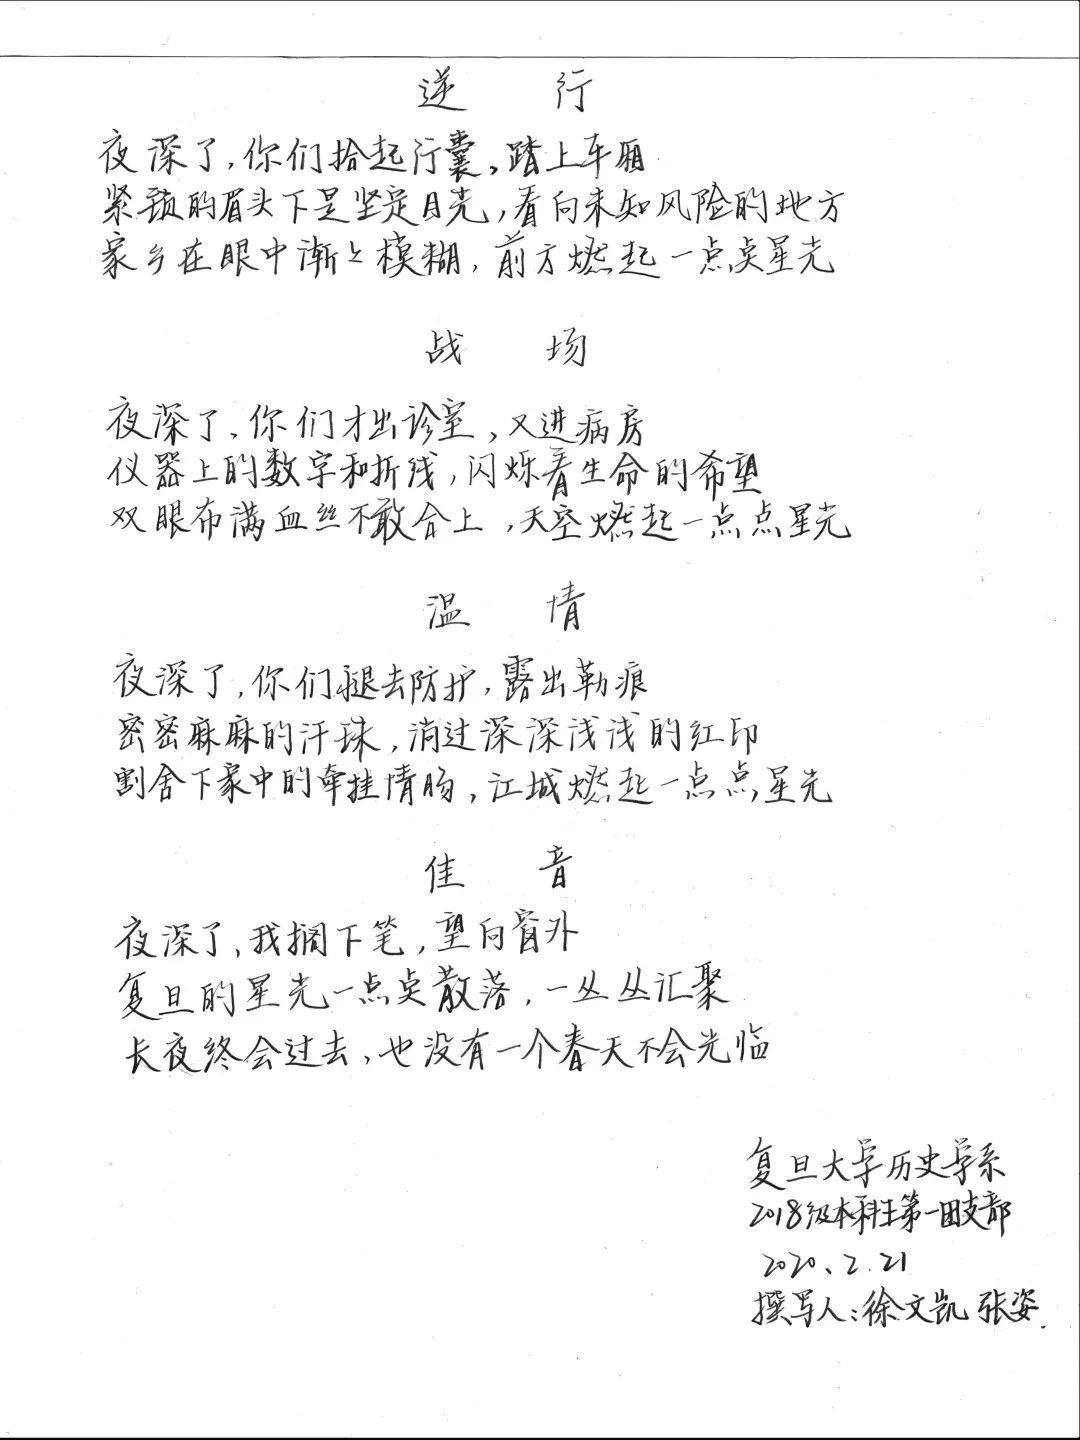 逆 行
夜深了，你们拾起行囊，踏上车厢
紧锁的眉头下是坚定目光，看向未知风险的地方
家乡在眼中渐渐模糊，前方燃起一点点星光
战 场
夜深了，你们才出诊室，又进病房
仪器上的数字和折线，闪烁着生命的希望
双眼布满血丝不敢合上，天空燃起一点点星光
温 情
夜深了，你们褪去防护，露出勒痕
密密麻麻的汗珠，淌过深深浅浅的红印
割舍下家中的牵挂情肠，江城燃起一点点星光
佳 音
夜深了，我搁下笔，望向窗外
复旦的星光一点点散落，一丛丛汇聚
长夜终会过去，也没有一个春天不会光临
复旦大学历史学系
2018级本科生第一团支部
2020.2.21
撰写人：徐文凯 张姿